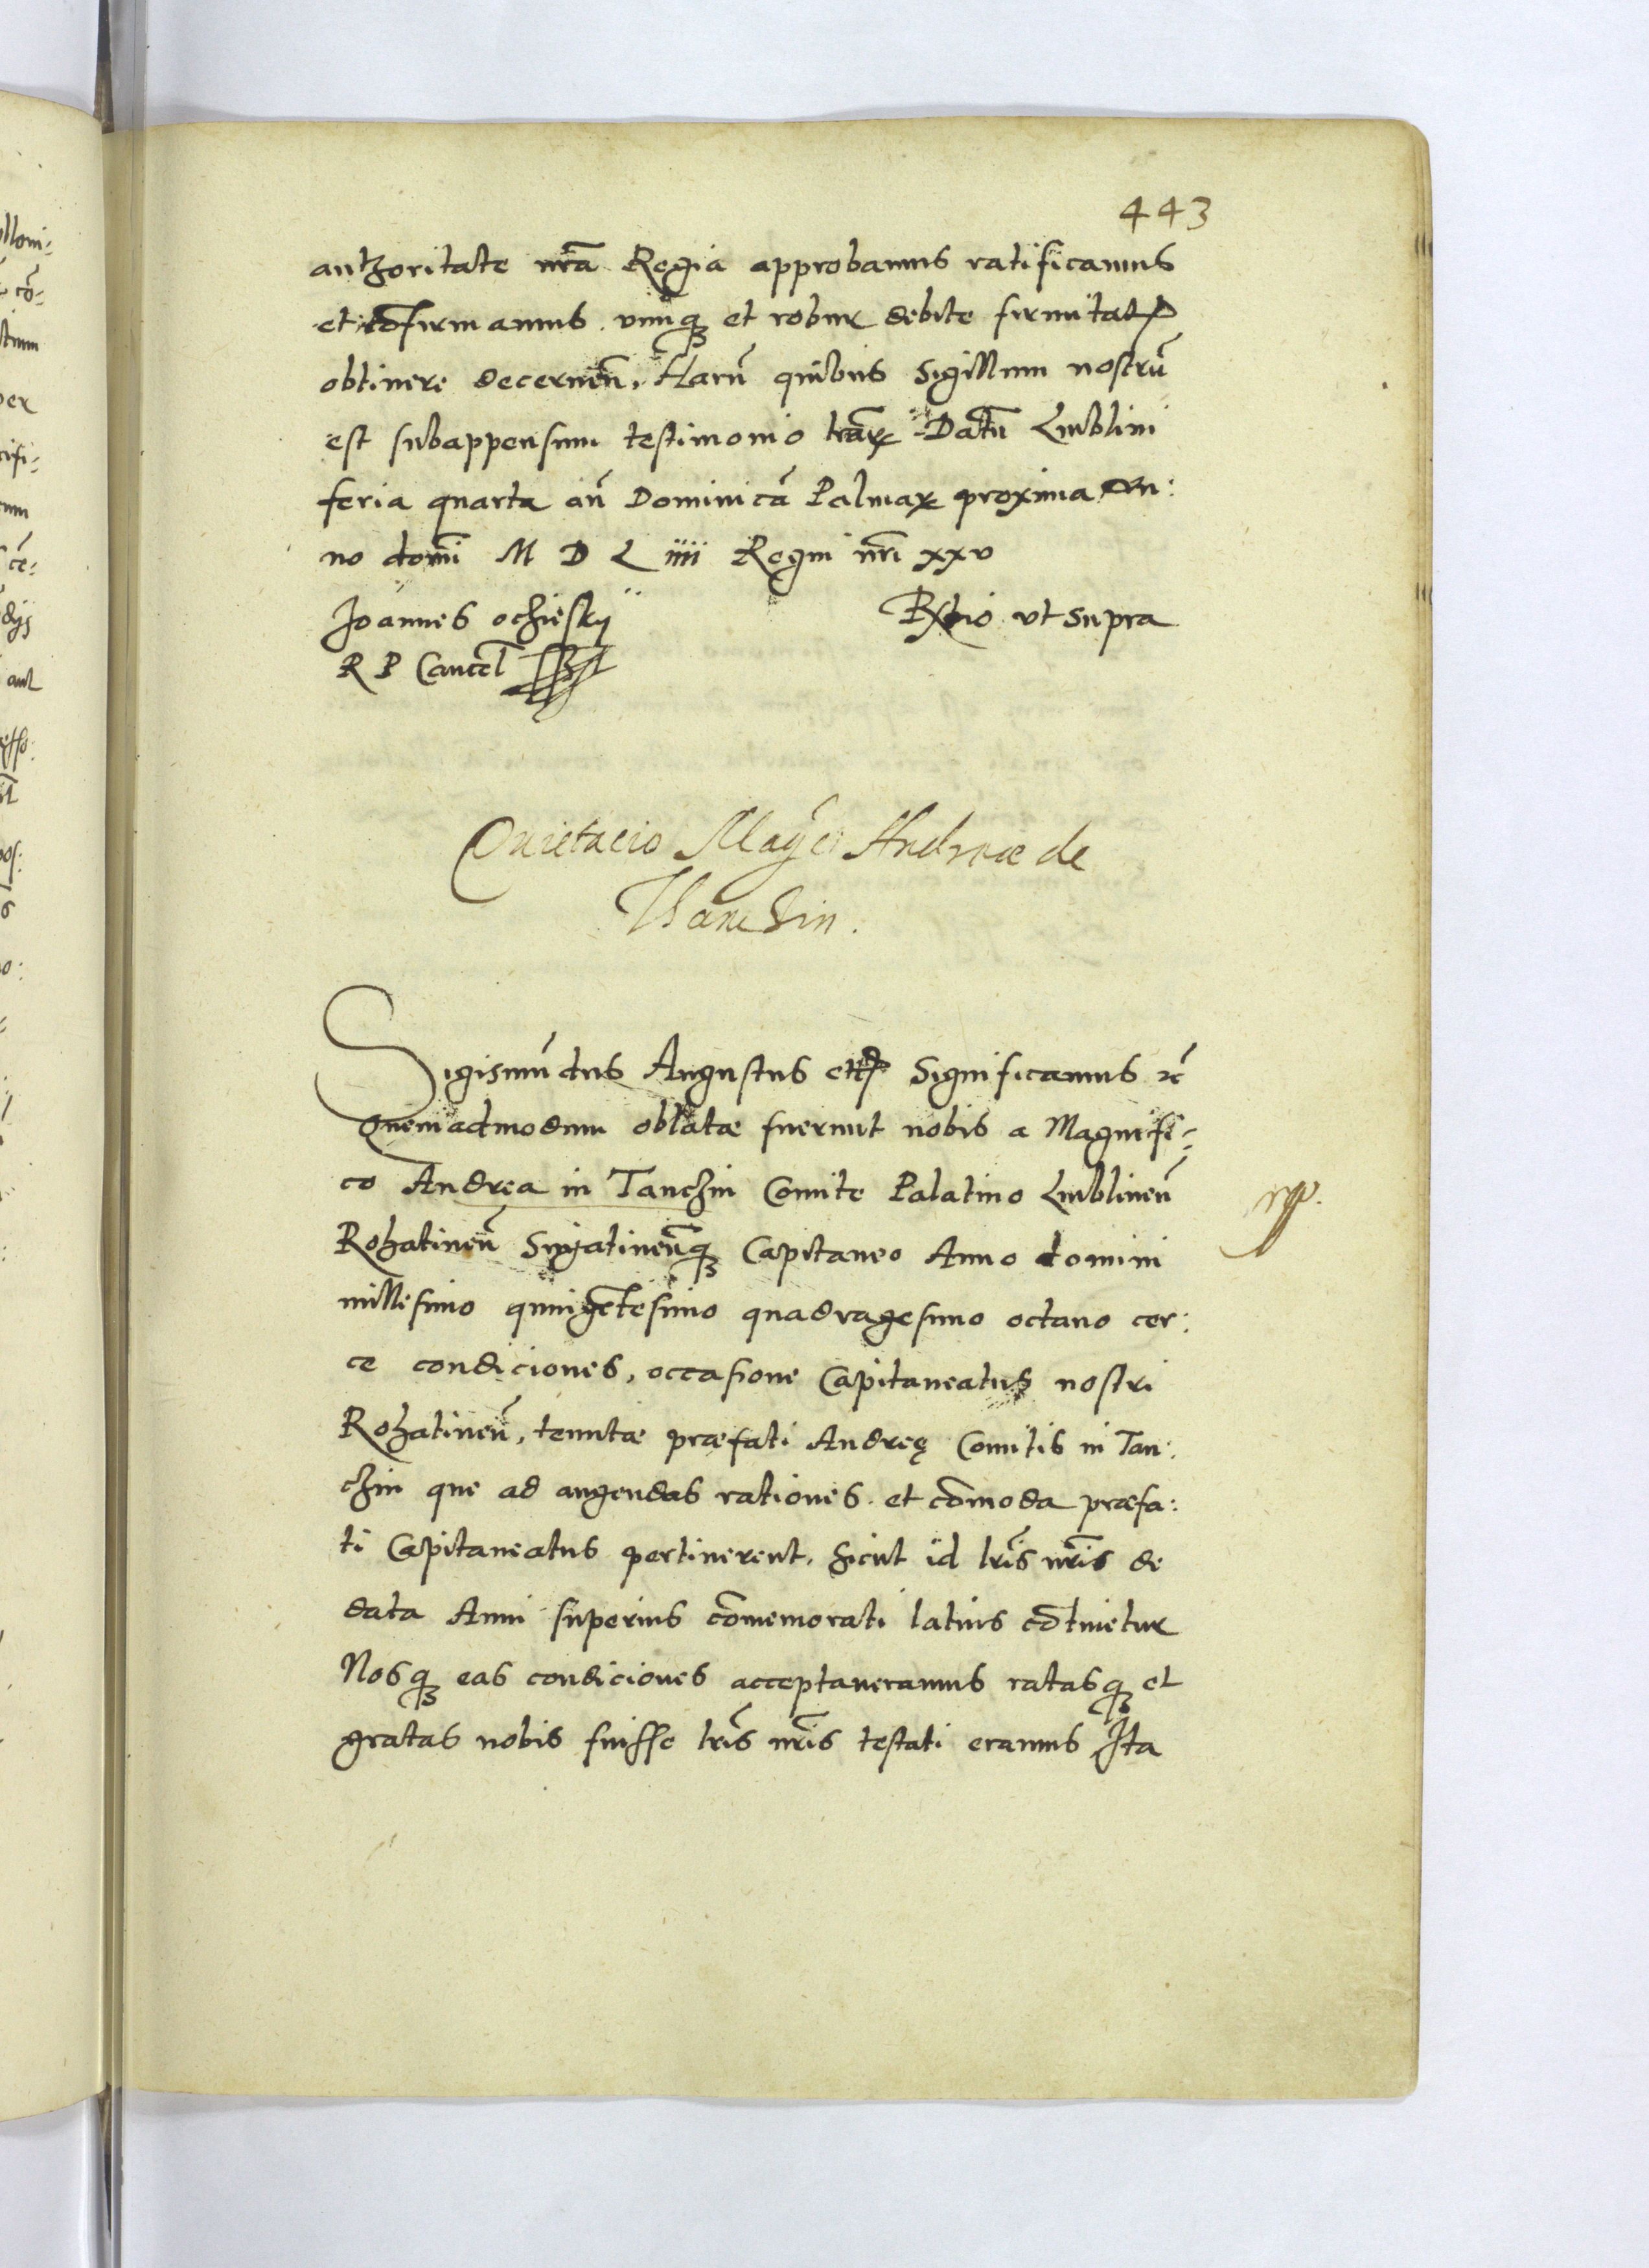 443
authoritate nr̃a Regia approbamus ratificamus
et cõfirmamus vimq₃ et robur debite firmitatꝭ
obtinere decerneñ. Harũ quibus Sigillum nostrũ
est subappensum testimonio lr̃aꝝ Datũ Lublini
feria quarta añ Dominicã Palmaꝝ proxima An:
no domĩ M D L iiii Regni nr̃i xxv
Joannes ochiesky
R P Cancel̃
Rl̃tio vt supra
Quietacio Mag̃ci Andreæ de
Thanchin.
Sigismũdus Augustus etcꝭ Significamus ꝛc̃
Quemadmodum oblatæ fuerunt nobis a Magnifi=
co Andrea in Tanchin Comite Palatino Lublineñ
Rohatineñ Sniatineñq₃ Capitaneo Anno domini
millesimo quingẽtesimo quadragesimo octauo cer:
te condiciones, occasione Capitaneatus nostri
Rohatineñ, tenutæ præfati Andreę Comitis in Tan:
chin que ad augendas rationes et cõmoda præfa:
ti Capitaneatus pertinerent, sicut id lr̃is nr̃is de
data Anni superius cõmemorati latius cõtinetur
Nosq₃ eas condiciones acceptaueramus ratasq₃ et
gratas nobis fuisse lr̃is nr̃is testati eramus Ita